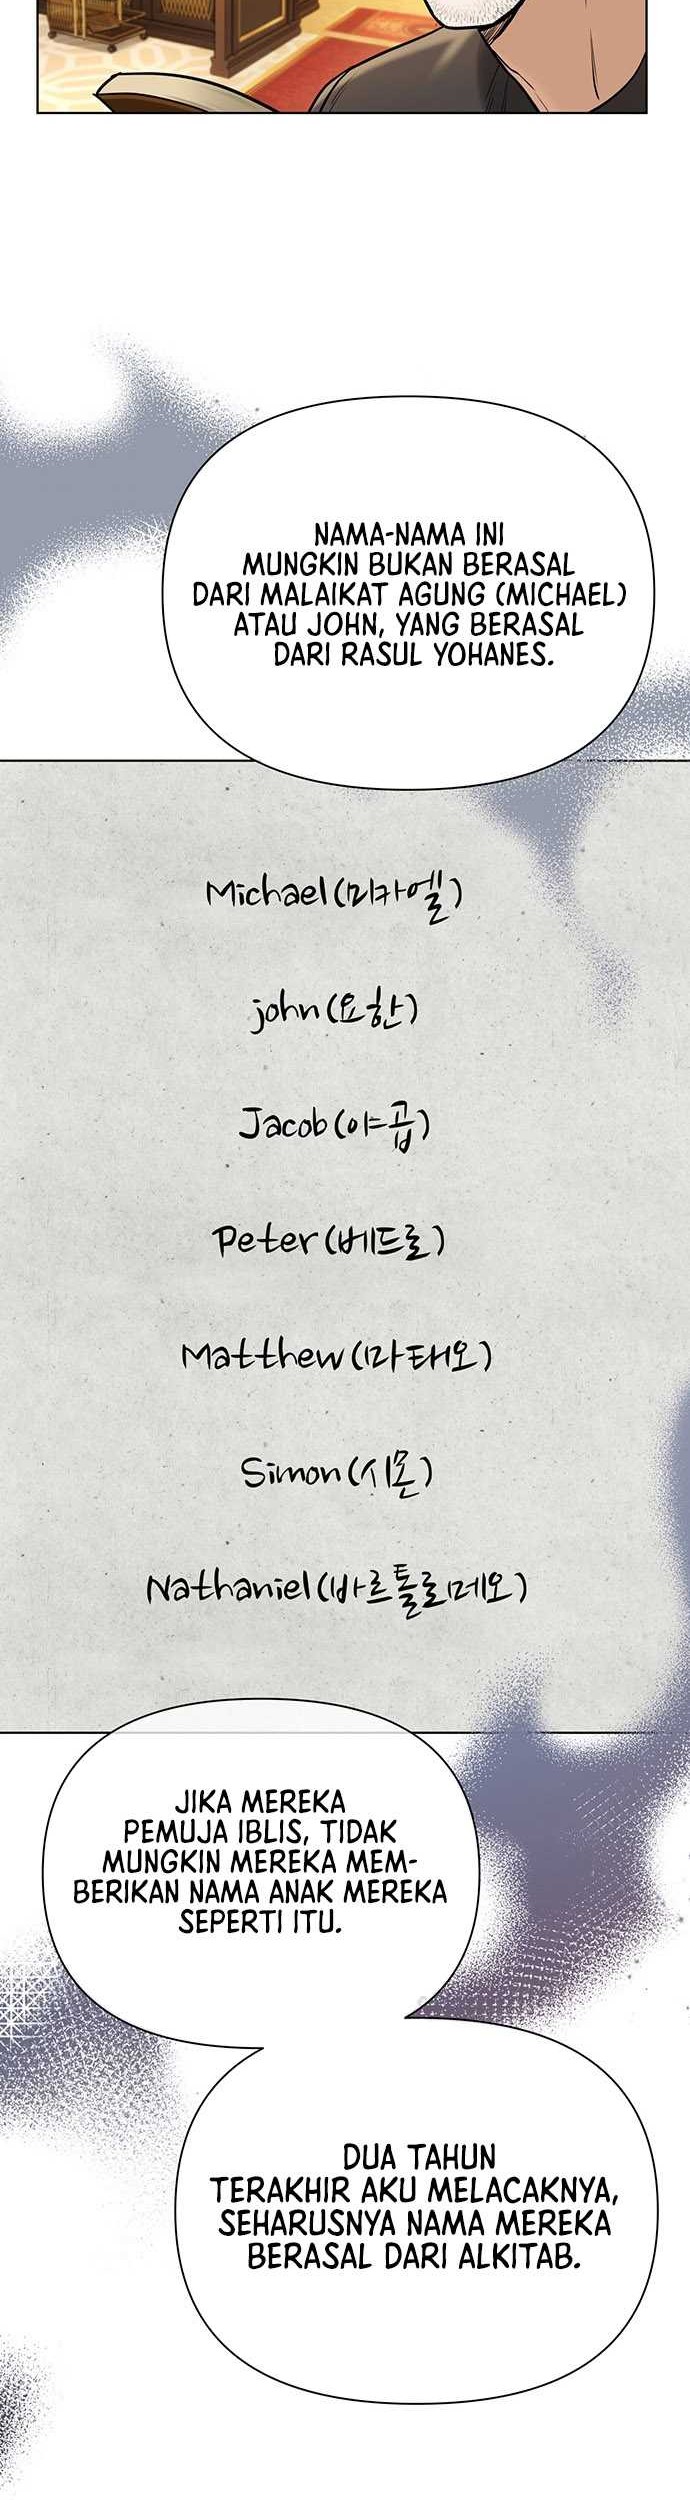 NAMA-NAMA INI
MUNGKIN BUKAN BERASAL
DARI MALAIKAT AGUNG (MICHAEL)
ATAU JOHN, YANG BERASAL
DARI RASUL YOHANES.
Michael(미카엘)
john(요한)
Jacob(야곱)
Peter(베드로)
Matthew(마태오)
Simon(시몬)
Nathaniel(바르톨로메오)
JIKA MEREKA
PEMUJA IBLIS, TIDAK
MUNGKIN MEREKA MEM-
BERIKAN NAMA ANAK MEREKA
SEPERTI ITU.
DUA TAHUN
TERAKHIR AKU MELACAKNYA,
SEHARUSNYA NAMA MEREKA
BERASAL DARI ALKITAB.